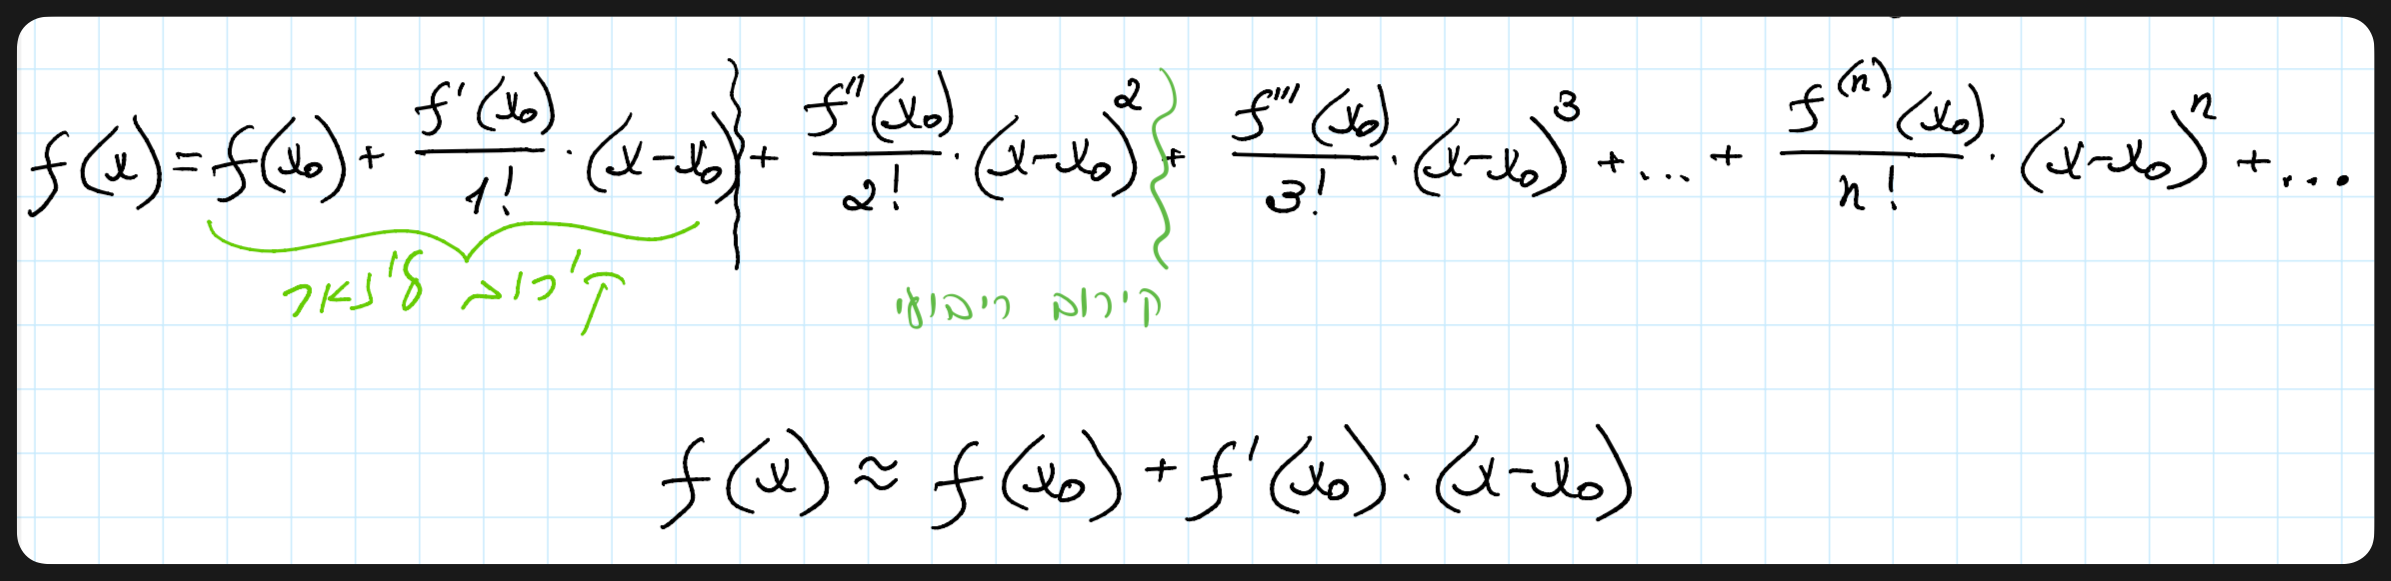 f(x) = f(x₀) + f'(x₀)/1! · (x-x₀) + f''(x₀)/2! · (x-x₀)² + f'''(x₀)/3! · (x-x₀)³ + ... + f⁽ⁿ⁾(x₀)/n! · (x-x₀)ⁿ + ...
קירוב לינאר
קירוב ריבועי
f(x) ≈ f(x₀) + f'(x₀) · (x-x₀)